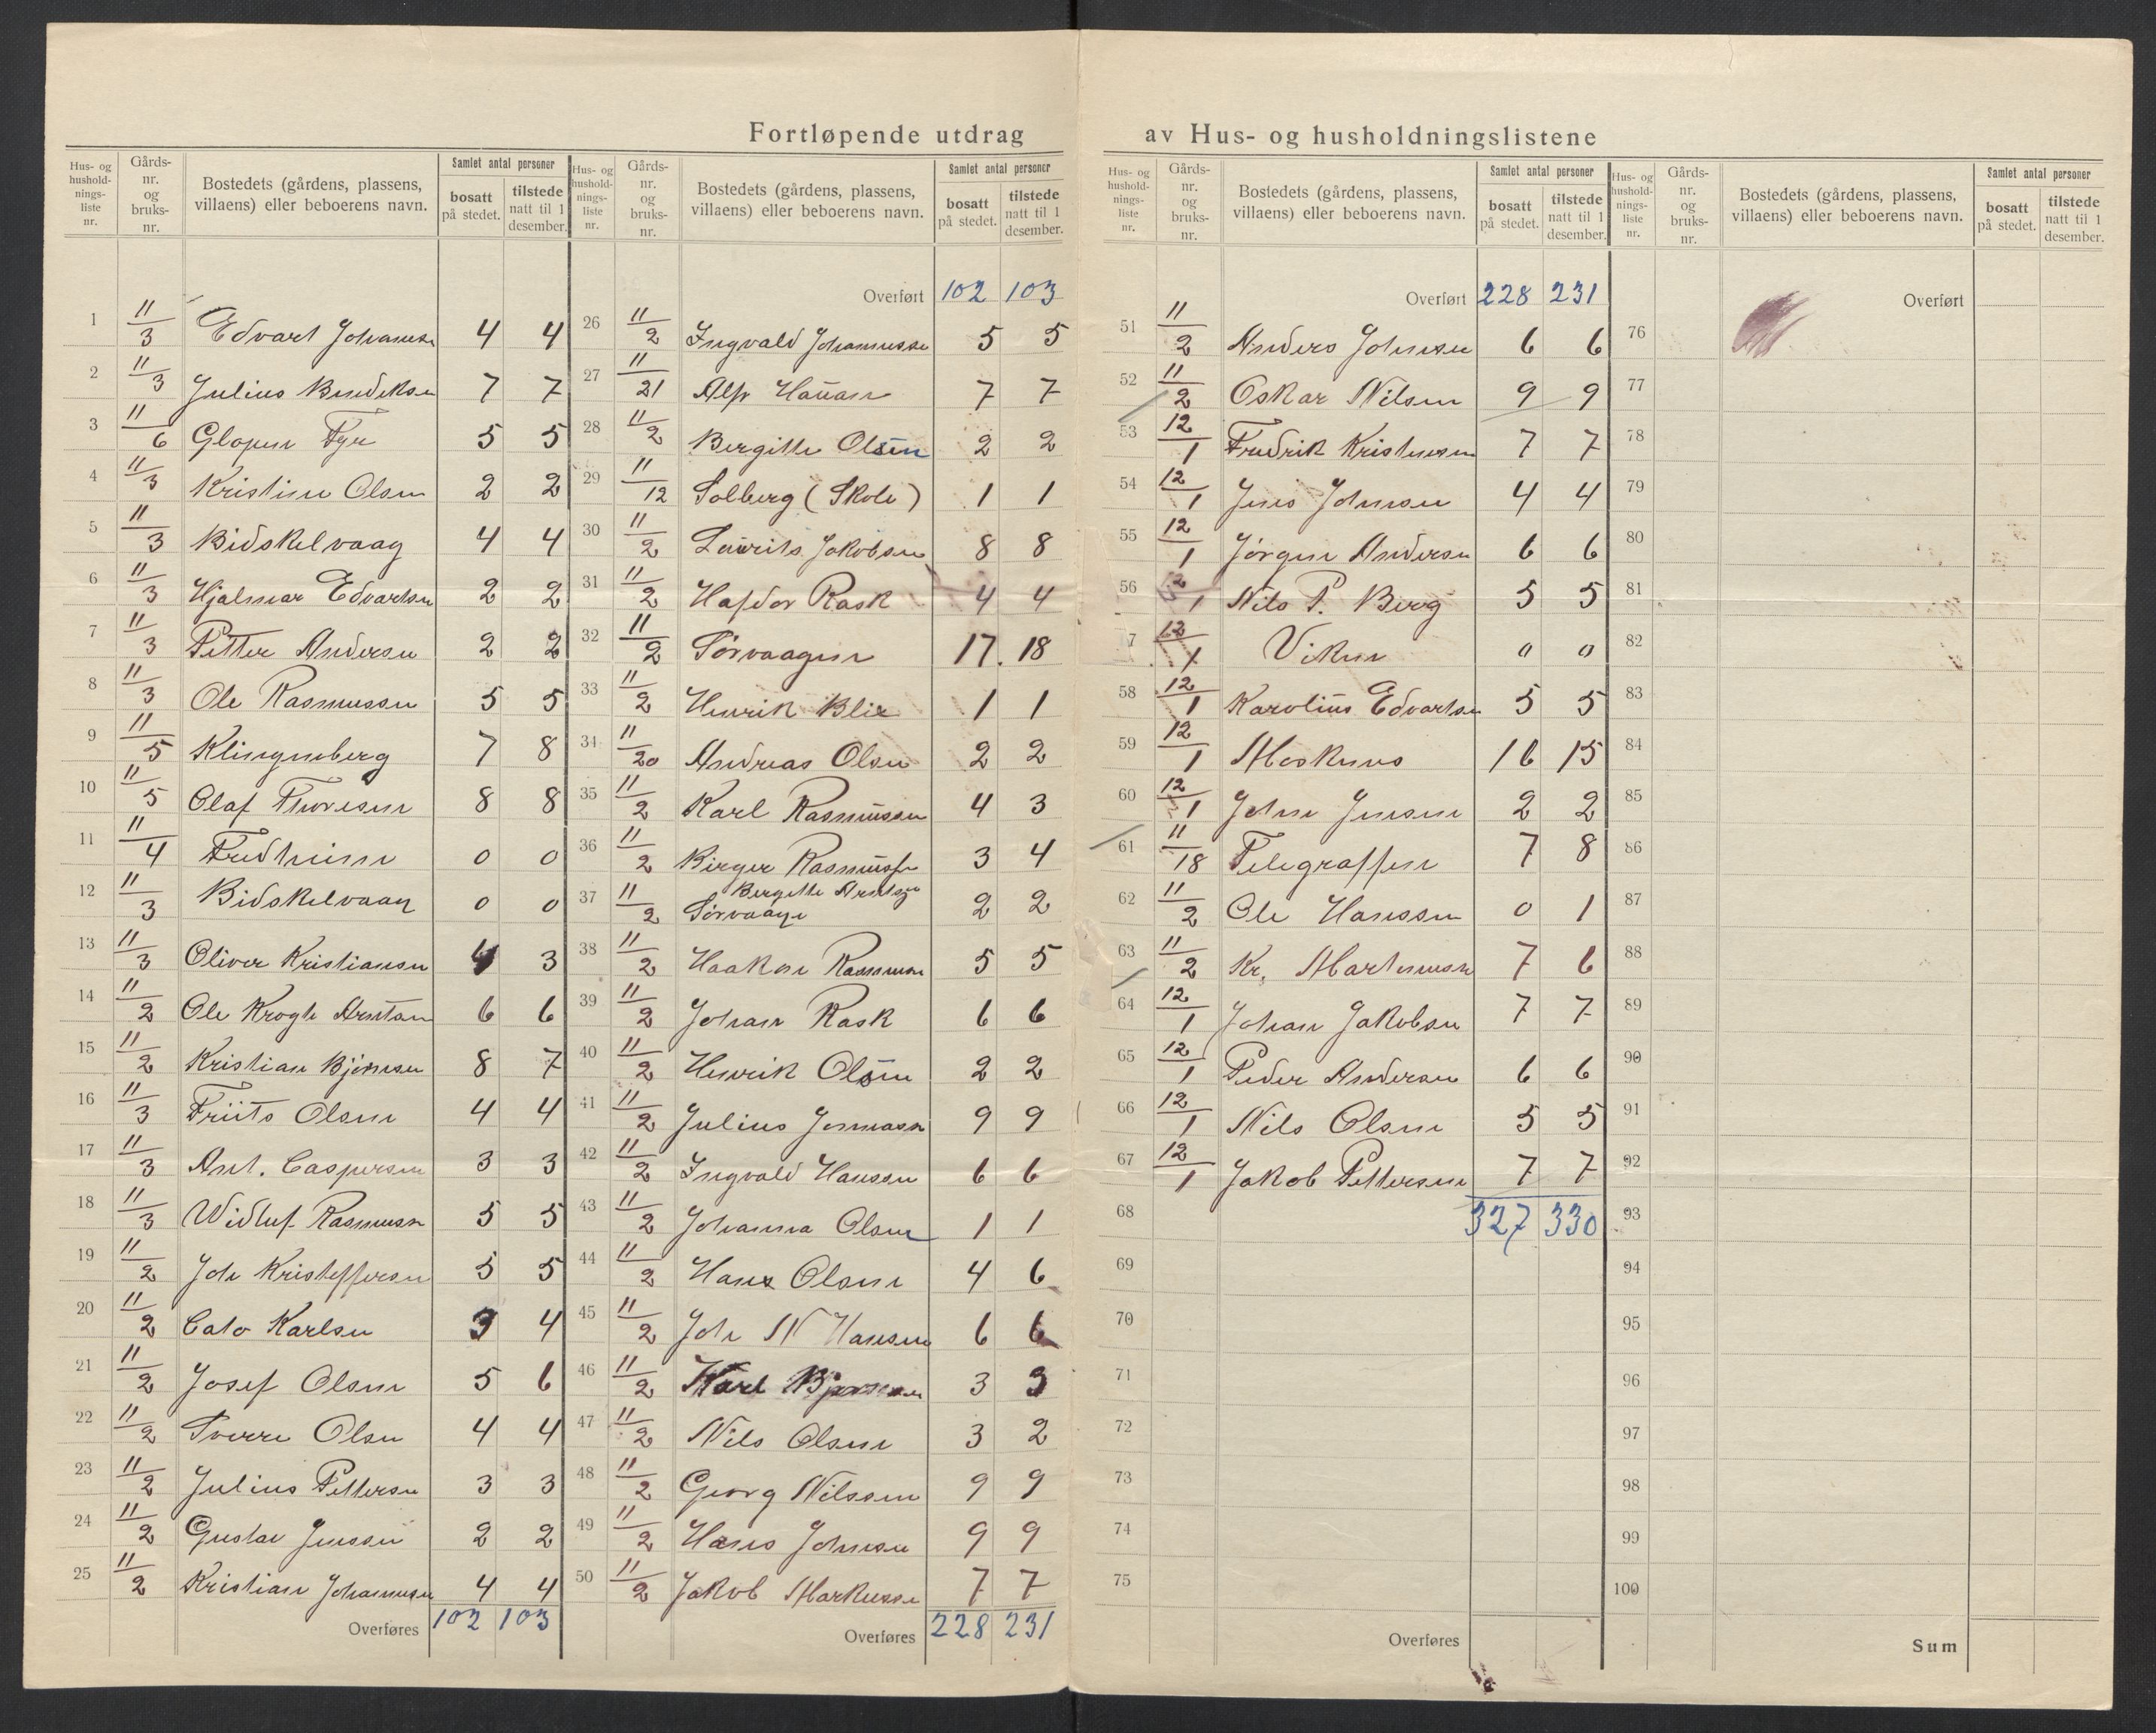 Fortløpende utdrag av Hus- og husholdningslistene
Hus- og husholdnings-liste nr. | Gårds-nr. og bruks-nr. | Bostedets (gårdens, plassens, villaens) eller beboerens navn. | Samlet antal personer | bosatt på stedet. | tilstede natt til 1 desember.
1 11/3 Edvart Johansen 4 4
2 11/3 Julius Bendiksen 7 7
3 11/6 Glopen Fyr 5 5
4 11/3 Kristine Olsen 2 2
5 11/3 Bidskelvaag 4 4
6 11/3 Hjalmar Edvartsen 2 2
7 11/3 Petter Andersen 2 2
8 11/3 Ole Rasmussen 5 5
9 11/5 Klingenberg 7 8
10 11/5 Olaf Thoresen 8 8
11 11/4 Fredheim 0 0
12 11/3 Bidskelvaag 0 0
13 11/3 Oliver Kristiansen 4 3
14 11/2 Ole Krogh Arntsen 6 6
15 11/2 Kristian Bjørnsen 8 7
16 11/3 Friits Olsen 4 4
17 11/3 Ant. Caspersen 3 3
18 11/3 Widluf Rasmussen 5 5
19 11/2 Joh Kristoffersen 5 5
20 11/2 Cato Karlsen 3 4
21 11/2 Josef Olsen 5 6
22 11/2 Sverre Olsen 4 4
23 11/2 Julius Pettersen 3 3
24 11/2 Gustav Jenssen 2 2
25 11/2 Kristian Johannesen 4 4
Overføres 102 103
Hus- og husholdnings-liste nr. | Gårds-nr. og bruks-nr. | Bostedets (gårdens, plassens, villaens) eller beboerens navn. | Samlet antal personer | bosatt på stedet. | tilstede natt til 1 desember.
Overført 102 103
26 11/2 Ingvald Johannessen 5 5
27 11/21 Alfr Hansen 7 7
28 11/2 Bergitte Olsen 2 2
29 11/12 Solberg (Skole) 1 1
30 11/2 Laurits Jakobsen 8 8
31 11/2 Hafdor Rask 4 4
32 11/2 Sørvaagen 17. 18
33 11/2 Henrik Blix 1 1
34 11/20 Andreas Olsen 2 2
35 11/2 Karl Rasmussen 4 3
36 11/2 Birger Rasmussen 3 4
37 11/2 Bergitte Arntsen
Sørvaagen 2 2
38 11/2 Haakon Rasmussen 5 5
39 11/2 Johan Rask 6 6
40 11/2 Henrik Olsen 2 2
41 11/2 Julius Jonassen 9 9
42 11/2 Ingvald Hanssen 6 6
43 11/2 Johanna Olsen 1 1
44 11/2 Hans Olsen 4 6
45 11/2 Joh N Hansen 6 6
46 11/2 Karl Bjørnsen 3 3
47 11/2 Nils Olsen 3 2
48 11/2 Georg Nilssen 9 9
49 11/2 Hans Johnsen 9 9
50 11/2 Jakob Markussen 7 7
Overføres 228 231
Hus- og husholdnings-liste nr. | Gårds-nr. og bruks-nr. | Bostedets (gårdens, plassens, villaens) eller beboerens navn. | Samlet antal personer | bosatt på stedet. | tilstede natt til 1 desember.
Overført 228 231
51 11/2 Anders Johnsen 6 6
52 11/2 Oskar Nilsen 9 9
53 12/1 Fredrik Kristensen 7 7
54 12/1 Jens Johnsen 4 4
55 12/1 Jørgen Andersen 6 6
56 12/1 Nils P. Berg 5 5
7 12/1 Viken 0 0
58 12/1 Karolius Edvartsen 5 5
59 12/1 Moskenes 16 15
60 12/1 John Jensen 2 2
61 11/18 Telegraffen 7 8
62 11/2 Ole Hanssen 0 1
63 11/2 Kr. Martinussen 7 6
64 12/1 Johan Jakobsen 7 7
65 12/1 Peder Andersen 6 6
66 12/1 Nils Olsen 5 5
67 12/1 Jakob Pettersen 7 7
68 327 330
69
70
71
72
73
74
75
Overføres
Hus- og husholdnings-liste nr. | Gårds-nr. og bruks-nr. | Bostedets (gårdens, plassens, villaens) eller beboerens navn. | Samlet antal personer | bosatt på stedet. | tilstede natt til 1 desember.
Overført
76
77
78
79
80
81
82
83
84
85
86
87
88
89
90
91
92
93
94
95
96
97
98
99
100
Sum